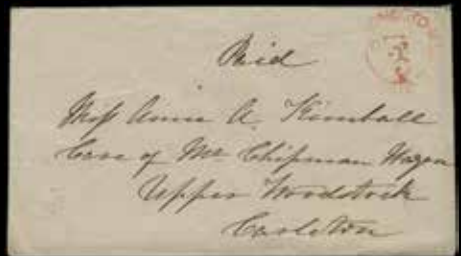 Paid
Miss Annie A. Kimball
Care of Mr Chipman Hazen
Upper Woodstock
Carleton